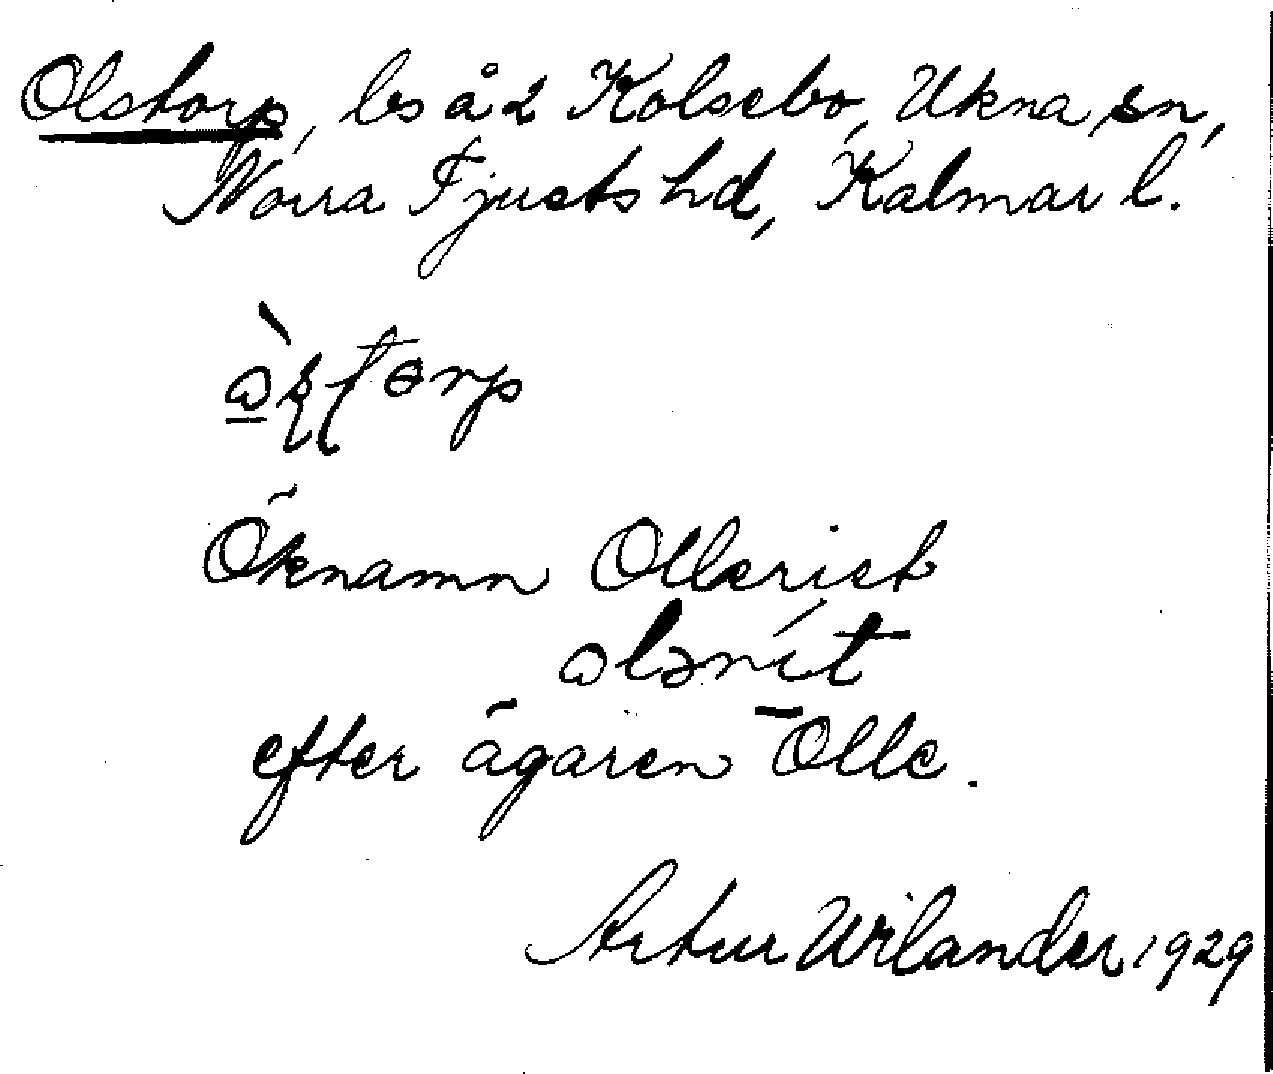 Olstorp, ls å 2 Kolsebo, Ukna sn,
Norra Tjusts hd, Kalmar l.
Öknamn Ollerick
efter ägaren Olle.
Artur Wilander 1929